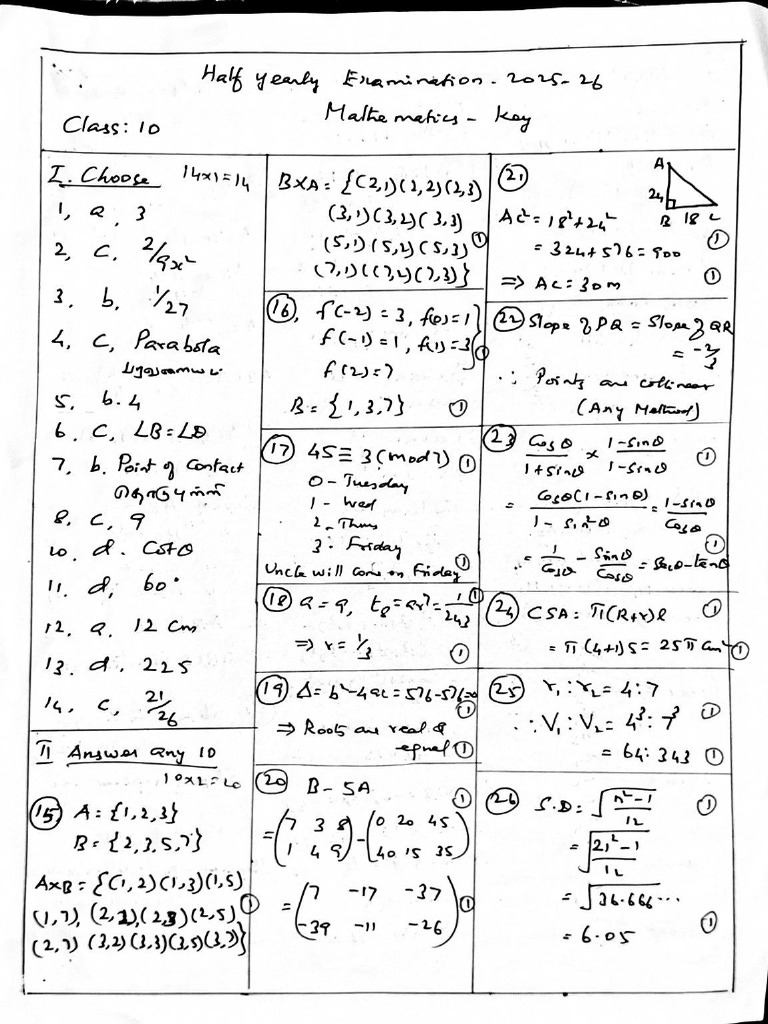 Half yearly Examination - 2025-26
Mathematics - Key
Class: 10
I. Choose 14x1=14
1, a, 3
2, c, 2/9x²
3. b. 1/27
4, c, Parabola
5. b. 4
6. c, ∠B=∠D
7, b. Point of Contact
8. c, 9
10. d. Cotθ
11. d, 60°
12. a. 12 cm
13. d. 225
14. c, 21/26
II Answer any 10
10x2=20
15, A = {1,2,3}
B = {2,3,5,7}
AxB = {(1,2)(1,3)(1,5)
(1,7), (2,2)(2,3)(2,5), ①
(2,7) (3,2)(3,3)(3,5)(3,7)}
BXA = {(2,1)(2,2)(2,3)
(3,1)(3,2)(3,3)
(5,1)(5,2)(5,3) ①
(7,1)((7,2)(7,3)}
16, f(-2) = 3, f(0)=1
f(-1)=1, f(1)=3 ①
f(2)=7
B = {1,3,7} ①
17 45 ≡ 3 (mod 7) ①
0 - Tuesday
1 - Wed
2. Thurs
3. Friday
Uncle will come on Friday ①
18 a = 9, t₈=ar⁷=1/243 ①
⇒ r = 1/3 ①
19 Δ = b²-4ac = 576-576=0 ①
⇒ Roots are real &
equal ①
20 B - 5A ①
= (7 3 8) - (0 20 45)
(1 4 9) (40 15 35)
= (7 -17 -37) ①
(-39 -11 -26)
21 A
24
B 18 C
AC² = 18²+24²
= 324+576=900 ①
⇒ AC = 30m ①
22 Slope of PQ = Slope of QR
= -2/3
∴ Points are collinear
(Any Method)
23 Cosθ/1+sinθ × 1-sinθ/1-sinθ ①
= Cosθ(1-sinθ)/1-sin²θ = 1-sinθ/Cosθ
①
= 1/Cosθ - Sinθ/Cosθ = Secθ-tanθ
24 CSA = π(R+r)l ①
= π(4+1)5 = 25π cm² ①
25 r₁:r₂ = 4:7 ①
∴ V₁:V₂ = 4³:7³
= 64:343 ①
26 S.D = √n²-1/12 ①
= √21²-1/12
= √36.666...
= 6.05 ①